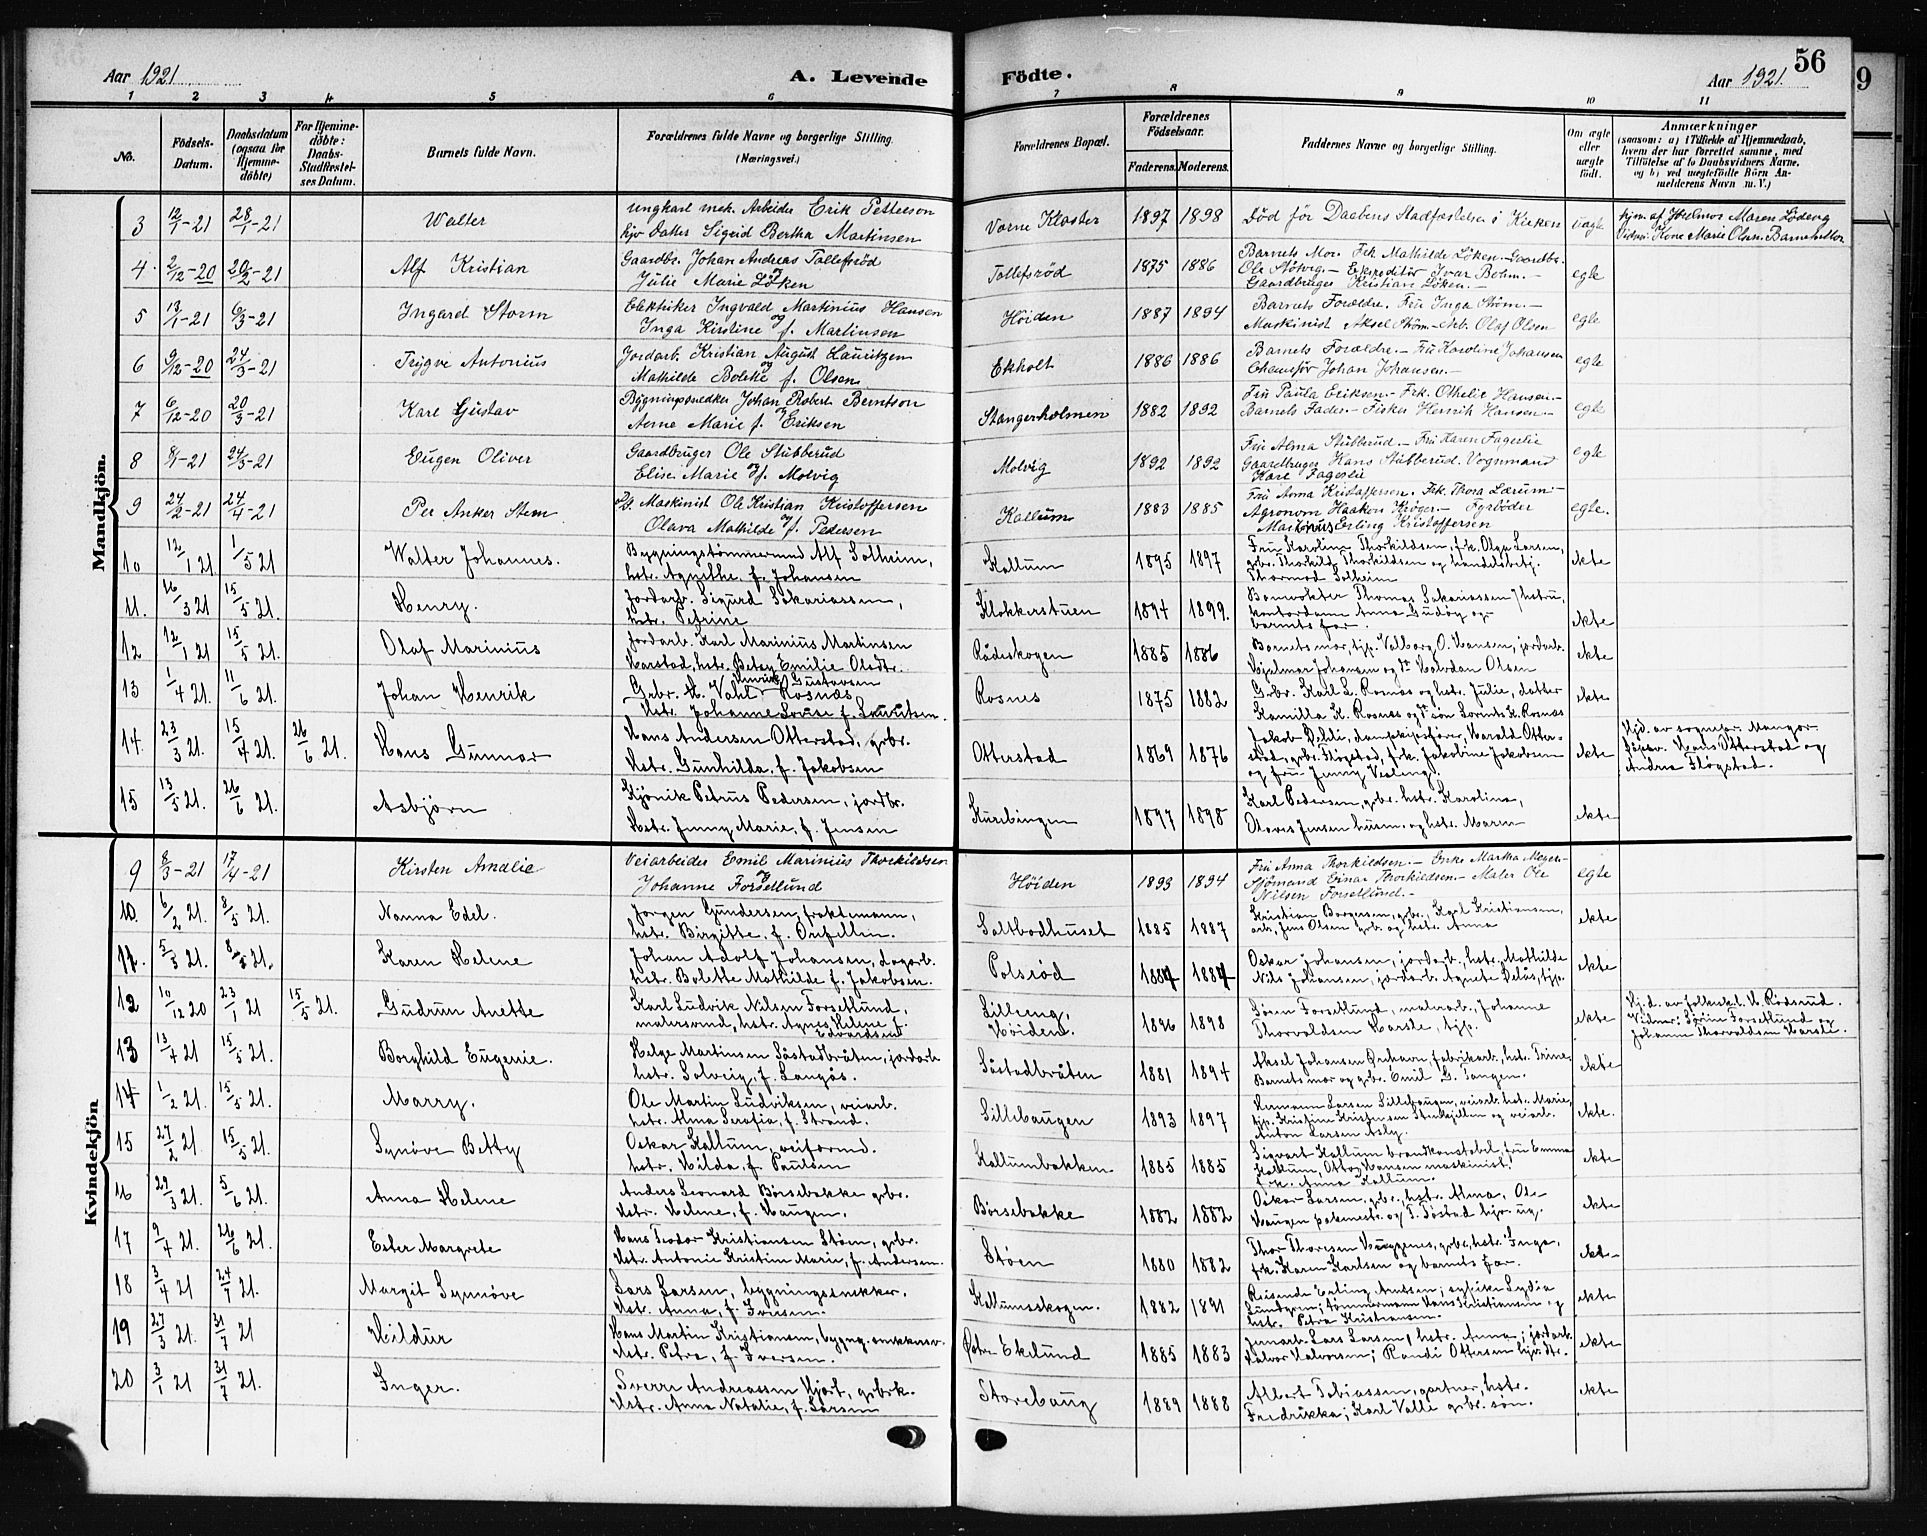 Aar 1921
A. Levende
Fødte.
Aar 1921.
56
9
1 2 3 4 5 6 7 8 9 10 11
No.
Fødsels-
Datum.
Daabsdatum
(ogsaa for
Hjemme-
døbte)
For Hjemme-
døbte:
Daabs-
Stadfæstel-
ses Datum.
Barnets fulde Navn.
Forældrenes fulde Navne og borgerlige Stilling.
(Næringsvei.)
Forældrenes Bopæl.
Forældrenes
Fødselsaar.
Faderens. Moderens.
Faddernes Navne og borgerlige Stilling.
Om ægte
eller
uægte
født.
Anmærkninger
(saasom: a) i Tilfælde af Hjemmedaab,
hvem der har forrettet samme, med
Tilføielse af to Daabsvidners Navne.
og b) ved uægtefødte Børn An-
melderens Navn m. V.)
Mandkjön.
3 12/1-21 28/1-21 Walter
ungkarl mek. Arbeider Erik Petterson
hjv. datter Sigrid Bertha Martinsen
Varne Kloster 1897 1898 Død før Daabens Stadfæstelse i Kirken uægte
4 2/12-20 20/2-21 Alf Kristian
Gaardbr. Johan Andreas Tollefsrød
og Julie Marie Løken
Tollefsrød 1875 1886
Barnets Mor. Frk. Mathilde Løken. Gaardbr.
Ole Støtvig - Expeditør Ivar Bohm. -
Gaardbruger Kristian Løken. - egte
5 13/1-21 6/3-21 Ingard Storm
Elektriker Ingvald Martinius Hansen
og Inga Kirstine f. Martinsen
Høiden 1887 1894
Barnets Forældre. Fru Inga Strøm. -
Maskinist Aksel Strøm - Arb. Olaf Olsen egte
6 9/12-20 24/3-21 Trygve Antonius
Jordarb. Kristian August Lauritzen
og Mathilde Bolette f. Olsen
Ekholt 1886 1886
Barnets Forældre. - Fru Karoline Johansen
Chauffør Johan Johansen. - egte
7 6/12-20 20/3-21 Kare Gustav
Bygningssnedker Johan Robert Berntson
og Anne Marie f. Eriksen
Stangerholmen 1882 1892
Fru Paula Eriksen - Frk. Othelie Hansen -
Barnets Fader - Fisker Henrik Hansen - egte
8 8/1-21 24/3-21 Eugen Oliver
Gaardbruger Ole Stubberud
og Elise Marie f. Molvig
Molvig 1892 1892
Fru Alma Stubberud. - Fru Karen Fagerlie
Gaardbruger Hans Stubberud. Vognmand
Kare Fagerlie egte
9 24/2-21 24/4-21 Per Anker Stem
Maskinist Ole Kristian Kristoffersen
og Olava Mathilde f. Pedersen
Kallum 1883 1885
Fru Anna Kristoffersen. Frk. Thora Lærum -
Agronom Haakon Krøger. - Fyrbøder
Markus Erling Kristoffersen egte.
10 12/1 21 1/5 21 Walter Johannes.
Bygningstømmermand Alf Solheim,
hstr. Agnethe f. Johansen
Kallum 1895 1897
Fru Karoline Thorkildsen, frk. Olga Larsen,
grbr. Thorkild Thorkildsen og handelsbetj.
Thormod Solheim ekte
11. 16/3 21 15/5 21. Henry.
Jordarb. Sigurd Sakariassen,
hstr. Petrine
Klokkerstuen 1894 1899.
Banevokter Thomas Sakariassen / hstru,
kontordame Anna Gudøy og
barnets far. ekte
12 12/1 21 15/5 21. Olaf Marinius
Jordarb. Karl Marinius Martinsen
Harstad, hstr. Betsy Emilie Olsdtr.
Rådeskogen 1885 1886
Barnets mor, tjp. Valborg O. Hansen, jordarb.
Hjelmar Johansen og Halvdan Olsen ekte
13 1/4 21. 11/6 21. Johan Henrik
Grbr. H. Vahl Henrik Gustavsen Rosnæs
Hstr. Johanne Lovise f. Lauritsen.
Rosnes 1875 1882
Grbr. Karl L. Rosnæs og hstr. Julie, datter
Kamilla K. Rosnæs og søn Lorents K. Rosnæs ekte
14. 23/3 21. 15/4 21. 26/6 21. Hans Gunnar
Hans Andersen Otterstad, grbr.
Hstr. Gunhilda, f. Jakobsen
Otterstad 1869 1876
ekte
Hjd. av sognepr. Mangor.
Hans Otterstad og
Andrea Fløgstad.
15 13/5 21. 26/6 21. Asbjørn
Kjønik Petrus Pedersen, jordbr.
Hstr. Jenny Marie, f. Jensen
Kurebingen 1897 1898
Karl Pedersen, grbr. hstr. Karoline,
Olaves Jensen husm. og hstr. Maren ekte
Kvindekjön
9 8/3-21 17/4-21 Kirsten Amalie
Veiarbeider Emil Marinius Thorkildsen
og Johanne Forsetlund
Høiden 1893 1894
Fru Anna Thorkildsen. - Enke Martha Meyer. -
Sjømand Einar Thorkildsen. - Maler Ole
Nilsen Forsetlund. - egte
10. 6/2 21. 8/5 21. Nanna Edel.
Jørgen Gundersen, fraktemann,
hstr. Birgitte, f.
Saltbodhuset 1885 1887
Kristian Borgersen, grbr., Karl Kristiansen,
arb., Jens Olsen grb. og hstr. Anna ekte
11. 5/3 21. 8/5 21. Karen Helene
Johan Adolf Johansen, dagarb.
hstr. Bolette Mathilde f. Jakobsen.
Polsrød 1884 1884
Oskar Johansen, jordarb., hstr. Mathilde
Nils Johansen, jordarb. Agnete Delås, tjp. ekte
12 10/12 20 23/1 21 15/5 21. Gudrun Anette
Karl Ludvik Nilsen Forsetlund,
malersvend, hstr. Agnes Helene f.
Edvardsen
Lilleeng,
Høiden. 1896 1898
Søren Forsetlund, malerarb., Johanne
Thorvaldsen Karste, tjp. ekte
Hj.d. av folkeskl. H. Rødsrud.
Vidner: Sørin Forsetlund og
Johanne Thorvaldsen Karste.
13 13/4 21 15/5 21. Borghild Eugenie.
Helge Martinsen Såstadbråten, jordarb
hstr. Solveig, f. Langås.
Såstadbråten 1881 1894
Aksel Johansen Ørehavn, fabrikarb., hstr. Trine,
Barnets mor og grbr. Emil G. Tangen. ekte
14 1/2 21. 15/5 21. Marry.
Ole Martin Ludviksen, veiarb.
hstr. Anna Serafia, f. Strand.
Lillehaugen 1893 1897
Hermann Larsen Lillehaugen, veiarb. hstr. Marie,
tjp. Kristine Kristensen og veiarb.
Anton Larsen Asly. ekte.
15 27/2 21 15/5 21. Synøve Betty
Oskar Kallum, veiformd.
hstr. Hilda, f. Paulsen
Kallumbakken 1885 1885
Sigvart Kallum brandkonstabel, fru Emma
Kallum, Otto Hansen maskinist,
frk. Anna Kallum. ekte
16 29/3 21. 5/6 21. Anna Helene
Anders Leonard Børsebakke grbr.
Hstr. Helene, f. Haugen.
Børsebakke 1882 1882
Oskar Larsen, grbr., hstr. Alma, Ole
Haugen ekte
17 9/4 21. 26/6 21. Ester Margrete
Hans Teodor Kristiansen Støen, grbr.
Hstr. Antonie Kristine Marie, f. Andersen.
Støen 1880 1882
Thor Thoresen Huggenes, grbr., hstr. Inga,
frk. Karen Karlsen og barnets far. ekte
18 3/4 21 24/7 21. Margit Synnøve
Lars Larsen, bygningssnekker.
Hst. Anna, f. Iversen.
Kallumsskogen. 1882 1891
Reisende Erling Arntsen; sypike Lydia
Lundgren; tømmermann Hans Kristiansen og
hstr. Petra Kristiansen. ekte
19 27/3 21. 31/7 21 Hildur
Hans Martin Kristiansen, bygng. snekker.
Hstr. Petra, f. Iversen.
Østre Ekelund 1885 1883
Jernarb. Lars Larsen, hstr. Anna; jordarb.
Halvor Halvorsen; Randi Ottersen hjv. dtr. ekte
20 3/1 21 31/7 21. Inger.
Sverre Andreassen Hjort, grbrk.
Hstr. Anna Natalie, f. Larsen
Storehaug 1889 1888
Albert Tobiassen, gartner, hstr.
Fredrikka; Karl Valle grbr. søn. ekte